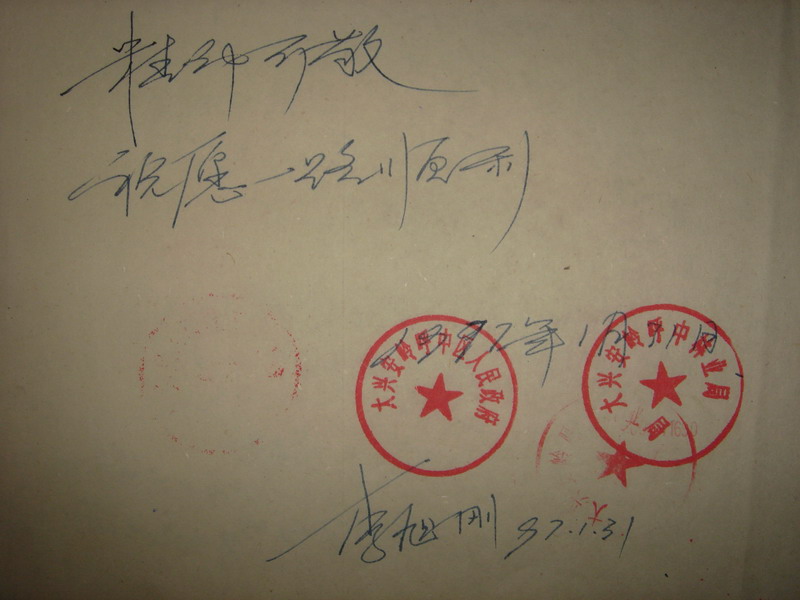 精神可敬
祝愿一路顺利
一九九七年1月31日
大兴安岭呼中区人民政府
大兴安岭呼中林业局
李旭刚 97.1.31